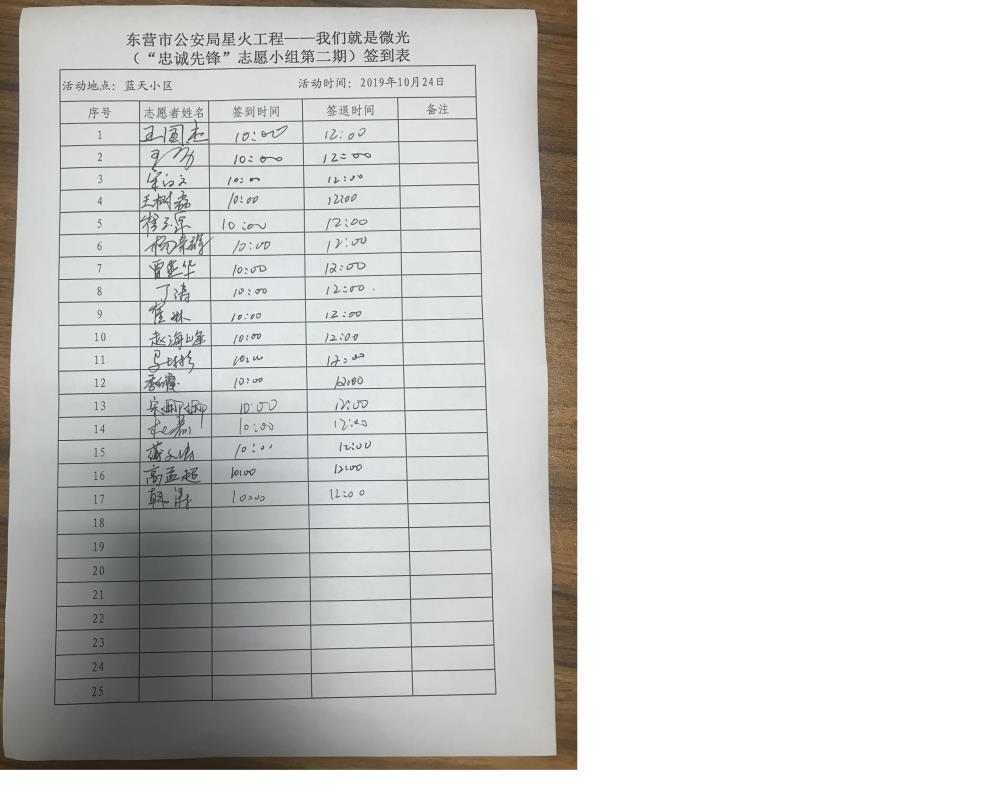 东营市公安局星火工程——我们就是微光
（“忠诚先锋”志愿小组第二期）签到表
活动地点：蓝天小区 活动时间：2019年10月24日
序号 志愿者姓名 签到时间 签退时间 备注
1 王国杰 10:00 12:00
2 10:00 12:00
3 10:00 12:00
4 王树磊 10:00 12:00
5 10:00 12:00
6 10:00 12:00
7 10:00 12:00
8 丁涛 10:00 12:00
9 崔琳 10:00 12:00
10 赵海峰 10:00 12:00
11 10:00 12:00
12 10:00 12:00
13 宋娜娜 10:00 12:00
14 杜磊 10:00 12:00
15 10:00 12:00
16 高孟超 10:00 12:00
17 10:00 12:00
18
19
20
21
22
23
24
25